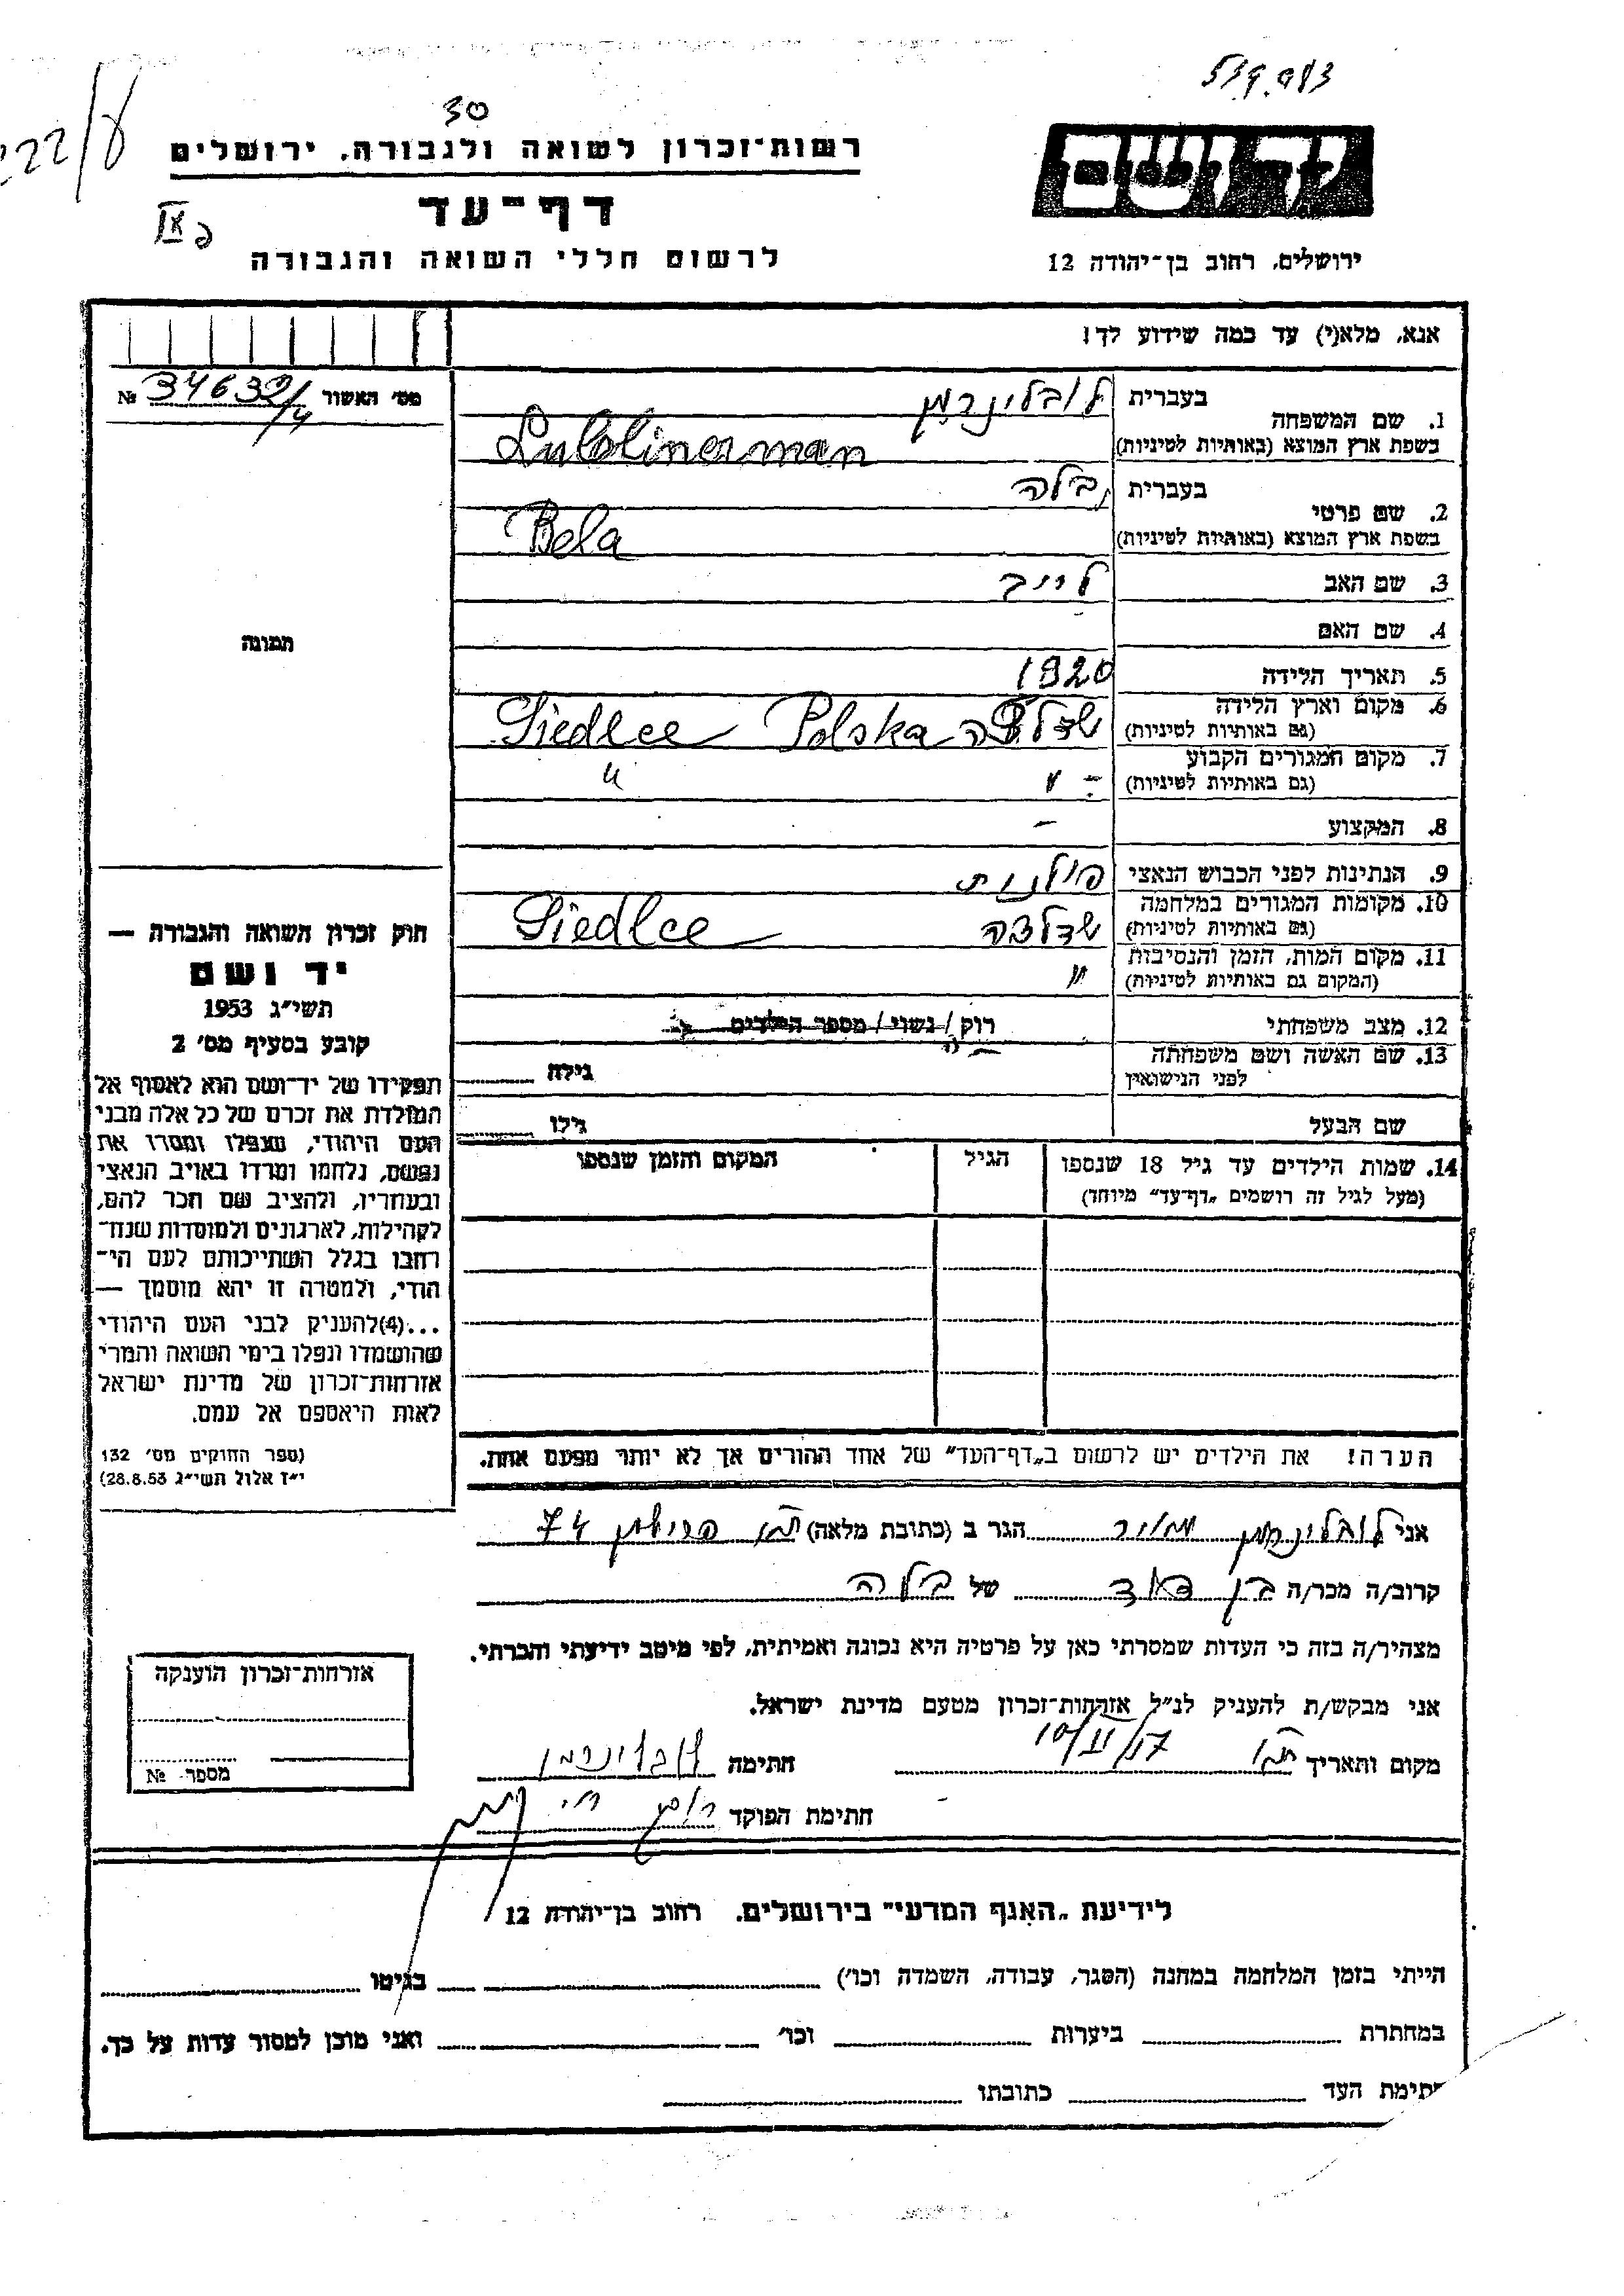 30
רשות־זכרון לשואה ולגבורה, ירושלים
דף־עד
לרשום חללי השואה והגבורה
יד ושם
ירושלים, רחוב בן־יהודה 12
אנא, מלא(י) עד כמה שידוע לך!
מס׳ האשור № 34632/4
תמונה
1. שם המשפחה בעברית לובלינרמן
בשפת ארץ המוצא (באותיות לטיניות) Lublinerman
2. שם פרטי בעברית בלה
בשפת ארץ המוצא (באותיות לטיניות) Bela
3. שם האב לייב
4. שם האם
5. תאריך הלידה 1920
6. מקום וארץ הלידה שדלצה Siedlce Polska
(גם באותיות לטיניות)
7. מקום המגורים הקבוע - " "
(גם באותיות לטיניות)
8. המקצוע -
9. הנתינות לפני הכבוש הנאצי פולנית
10. מקומות המגורים במלחמה שדלצה Siedlce
(גם באותיות לטיניות)
11. מקום המות, הזמן והנסיבות "
(המקום גם באותיות לטיניות)
12. מצב משפחתי רוק / נשוי / מספר הילדים
13. שם האשה ושם משפחתה
לפני הנישואין גילה
שם הבעל גילו
14. שמות הילדים עד גיל 18 שנספו הגיל המקום והזמן שנספו
(מעל לגיל זה רושמים „דף־עד״ מיוחד)
הערה! את הילדים יש לרשום ב„דף־העד״ של אחד ההורים אך לא יותר מפעם אחת.
חוק זכרון השואה והגבורה —
יד ושם
תשי״ג 1953
קובע בסעיף מס׳ 2
תפקידו של יד־ושם הוא לאסוף אל
המולדת את זכרם של כל אלה מבני
העם היהודי, שנפלו ומסרו את
נפשם, נלחמו ומרדו באויב הנאצי
ובעוזריו, ולהציב שם וזכר להם,
לקהילות, לארגונים ולמוסדות שנח־
רבו בגלל השתייכותם לעם הי־
הודי, ולמטרה זו יהא מוסמך —
...(4) להעניק לבני העם היהודי
שהושמדו ונפלו בימי השואה והמרי
אזרחות־זכרון של מדינת ישראל
לאות היאספם אל עמם.
(ספר החוקים מס׳ 132
י״ז אלול תשי״ג 28.8.53)
אני לובלינרמן מאיר הגר ב (כתובת מלאה) 74
קרוב/ה מכר/ה בן דוד של בלה
מצהיר/ה בזה כי העדות שמסרתי כאן על פרטיה היא נכונה ואמיתית, לפי מיטב ידיעתי והכרתי.
אני מבקש/ת להעניק לנ״ל אזרחות־זכרון מטעם מדינת ישראל.
מקום ותאריך חתימה לובלינרמן
חתימת הפוקד
אזרחות־זכרון הוענקה
מספר №
לידיעת „האגף המדעי״ בירושלים, רחוב בן־יהודה 12
הייתי בזמן המלחמה במחנה (הסגר, עבודה, השמדה וכו׳) בגיטו
במחתרת ביערות וכו׳ ואני מוכן למסור עדות על כך.
חתימת העד כתובתו